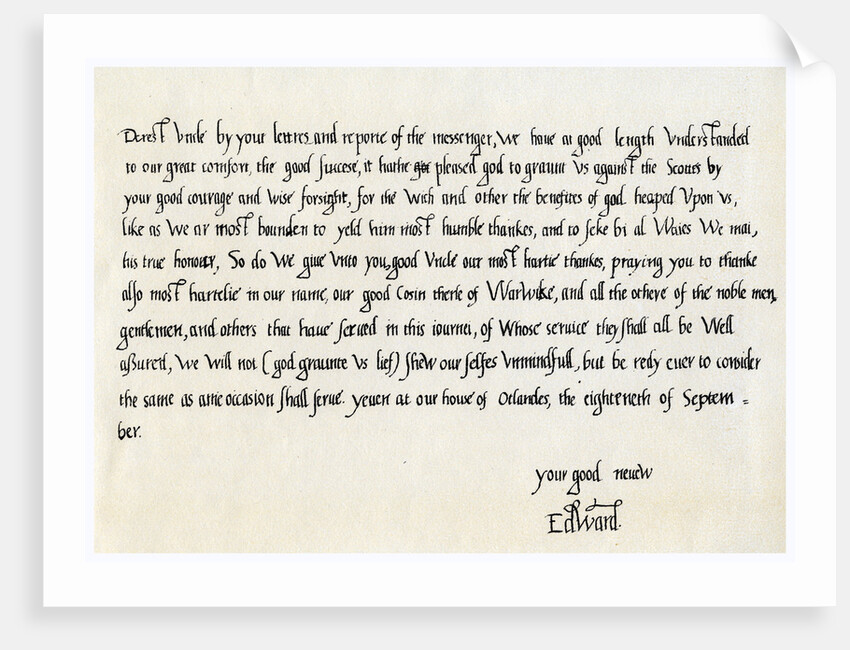 Derest Vncle by your lettres and reporte of the messenger, we haue at good length Vnderstanded
to our great comfort, the good succese, it hathe pleased god to graunt Vs against the Scottes by
your good courage and wise forsight, for the wich and other the benefites of god heaped Vpon vs,
like as We ar most bounden to yeld him most humble thankes, and to seke bi al Waies We mai,
his true honour, So do We giue Vnto you, good Vncle our most hartie thankes, praying you to thanke
also most hartelie in our name, our good Cosin therle of Warwike, and all the othere of the noble men,
gentlemen, and others that haue serued in this iournei, of Whose seruice they shall all be Well
assured, We will not (god graunte Vs lief) shew our selfes Vnmindfull, but be redy euer to consider
the same as anie occasion shall serue. yeuen at our house of Otlandes, the eighteneth of Septem=
ber.
your good neuew
Edward.